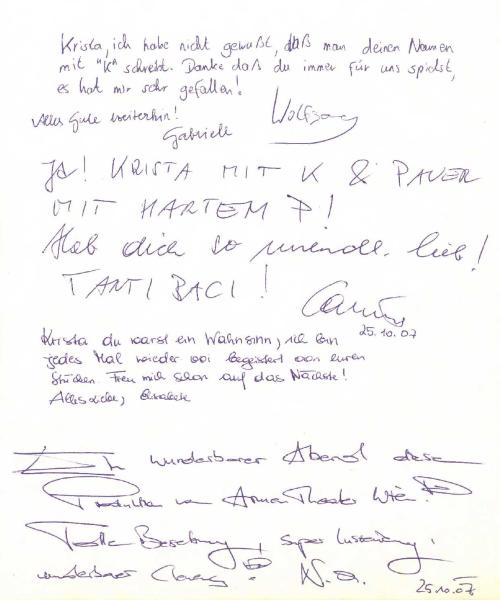 Krista, ich habe nicht gewußt, daß man deinen Namen
mit "K" schreibt. Danke daß du immer für uns spielst,
es hat mir sehr gefallen!
Alles Gute weiterhin! Wolfgang
Gabriele
JA! KRISTA MIT K & PAUER
MIT HARTEM P!
Hab dich so unendl. lieb!
TANTI BACI!
25.10.07
Krista du warst ein Wahnsinn, ich bin
jedes Mal wieder begeistert von euren
Stücken. Freu mich schon auf das Nächste!
Alles Liebe,
Ein wunderbarer Abend diese
Produktion von Theater Wien!
Tolle Besetzung, super Inszenierung,
wunderbarer
25.10.07